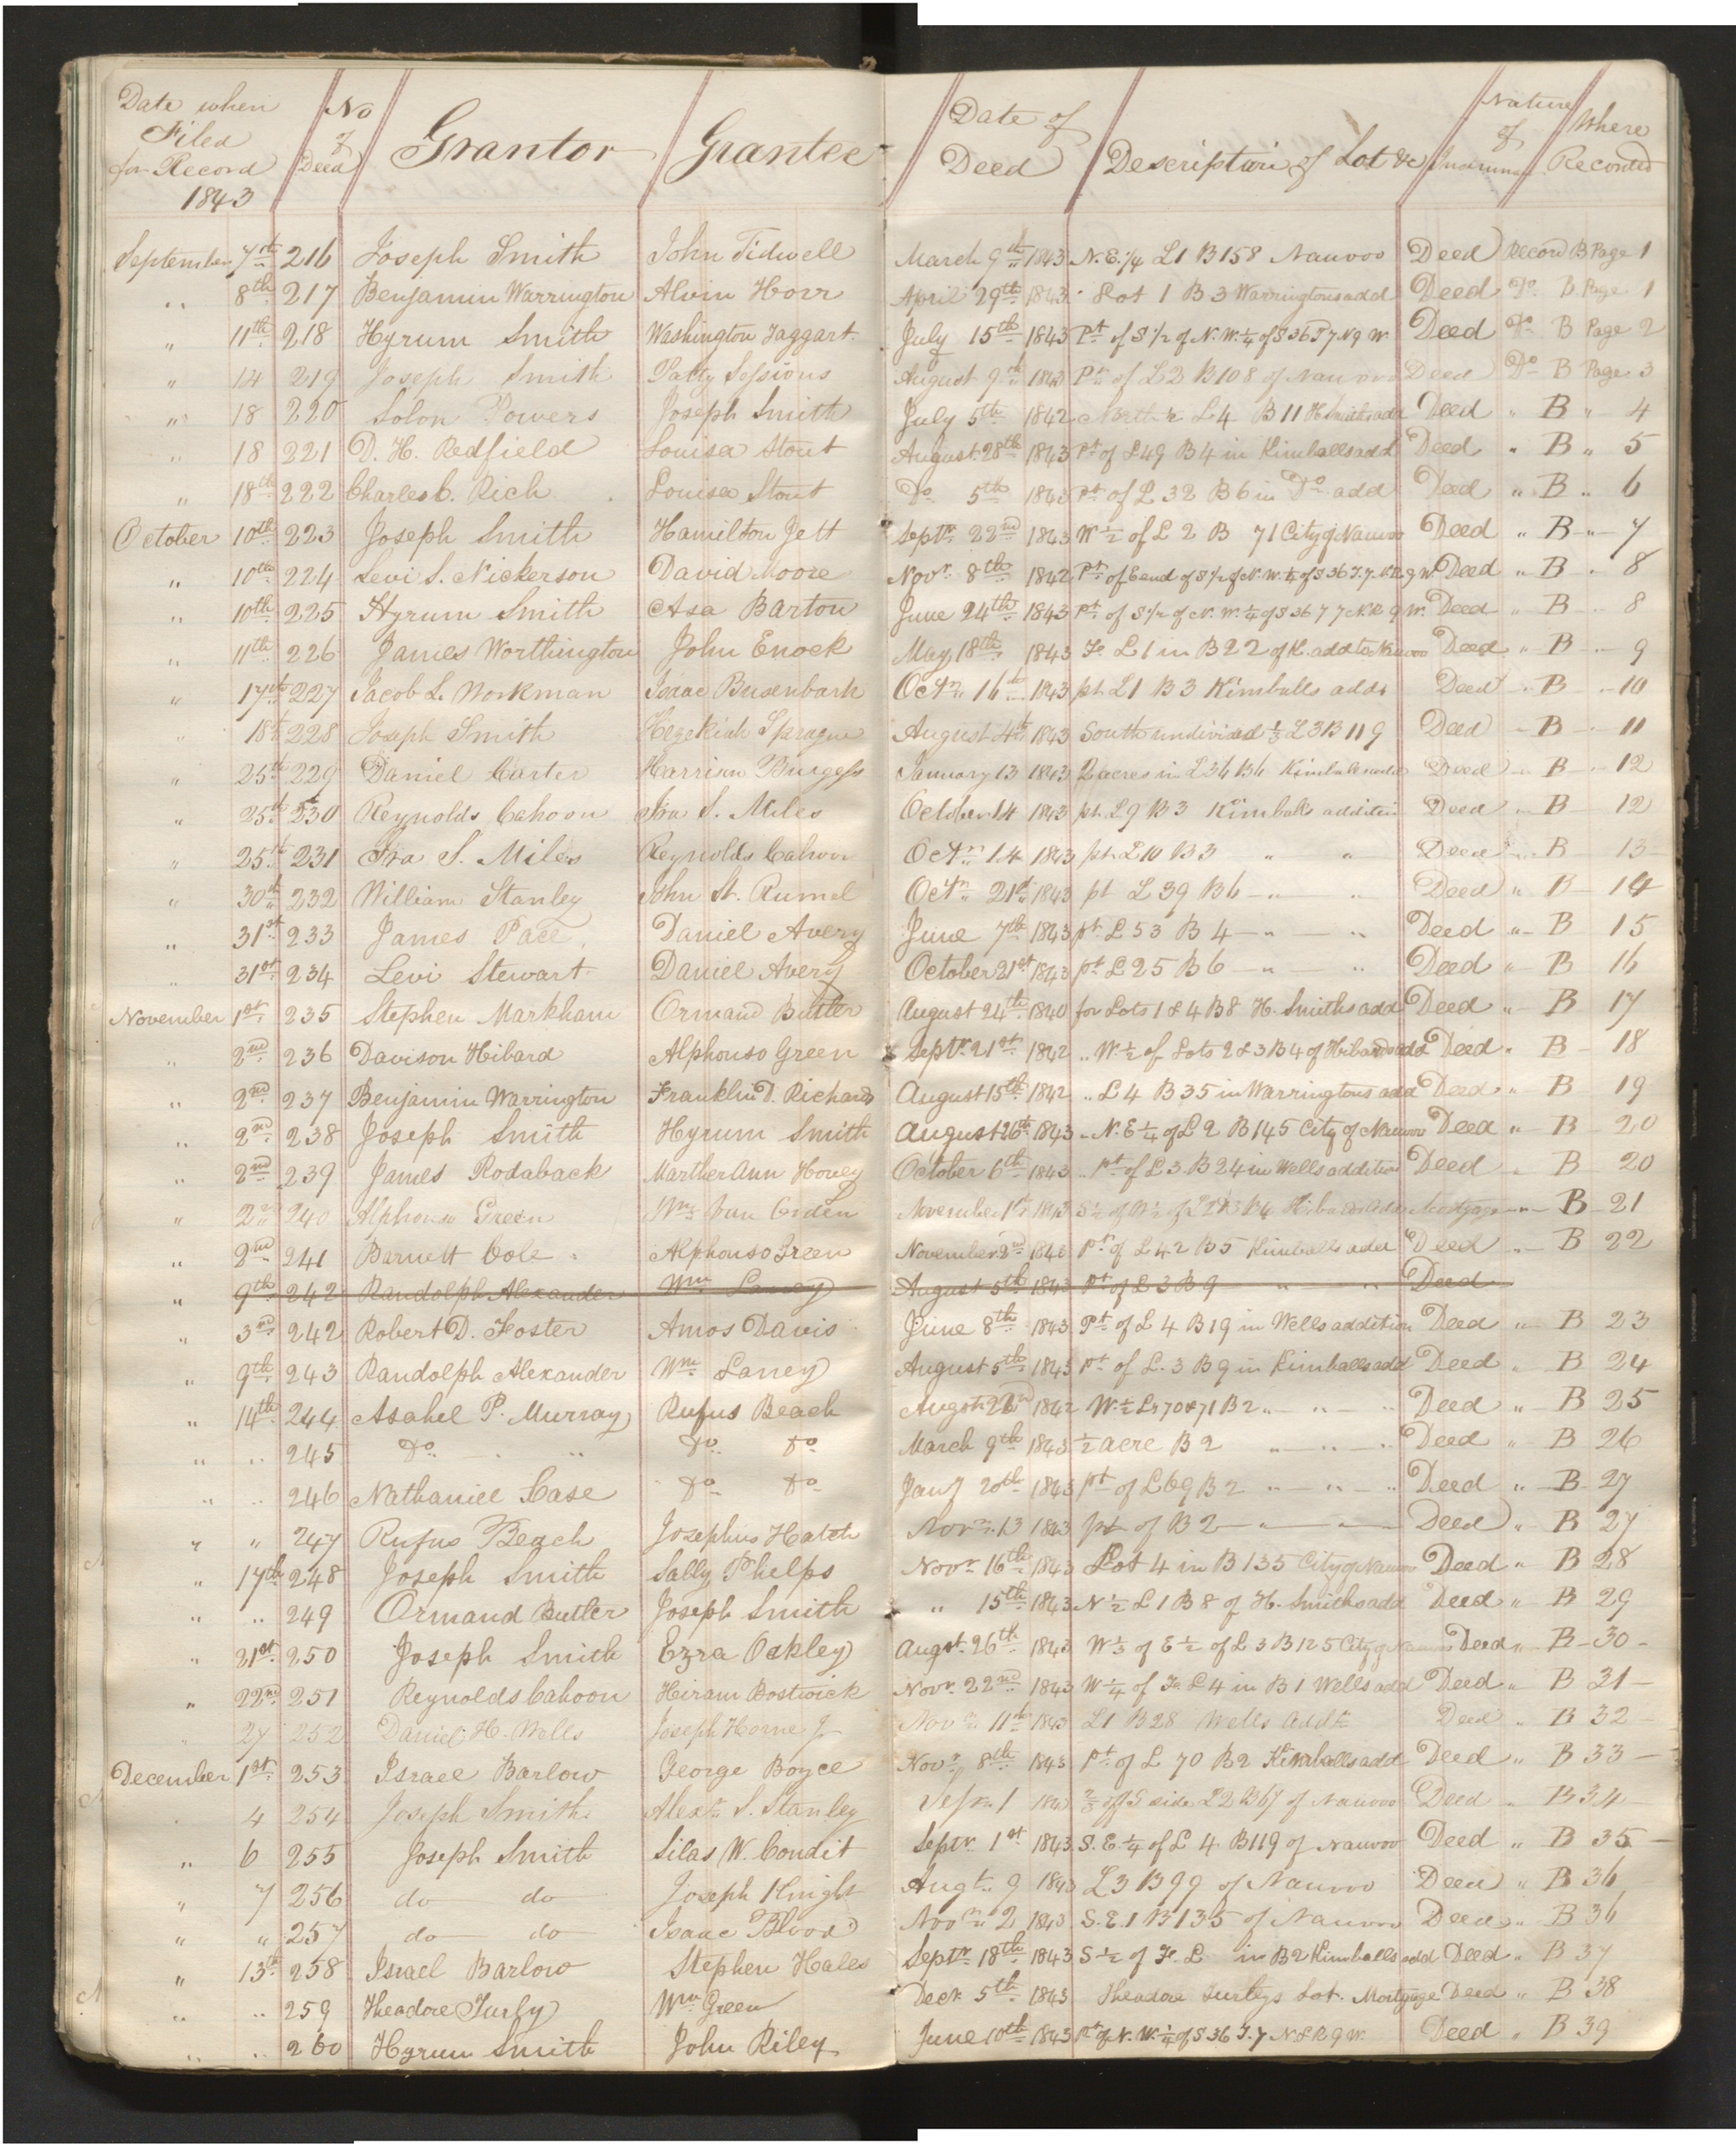 Date when Filed for Record 1843 No of Deed Grantor Grantee Date of Deed Description of Lot &c Nature of Where Recorded
September 7th 216 Joseph Smith John Tidwell March 9th 1843 N.E. 1/4 L1 B158 Nauvoo Deed Record B Page 1
„ 8th 217 Benjamin Warrington Alvin Horr April 29th 1843 Lot 1 B3 Warringtons add Deed Do B Page 1
„ 11th 218 Hyrum Smith Washington Taggart July 15th 1843 Pt of S 1/2 of N.W. 1/4 of S36 T7 N9 W Deed Do B Page 2
„ 14 219 Joseph Smith Patty Sessions August 9th 1843 Pt of L2 B108 of Nauvoo Deed Do B Page 3
„ 18 220 Solon Powers Joseph Smith July 5th 1842 North 1/2 L4 B11 H Smiths add Deed „ B „ 4
„ 18 221 D. H. Redfield Louisa Stout August 28th 1843 Pt of L49 B4 in Kimballs add Deed „ B „ 5
„ 18th 222 Charles C. Rich Louisa Stout Do 5th 1843 Pt of L32 B6 in Do add Deed „ B „ 6
October 10th 223 Joseph Smith Hamilton Jett Septr 22nd 1843 W 1/2 of L2 B 71 City of Nauvoo Deed „ B „ 7
„ 10th 224 Levi S. Nickerson David Moore Novr 8th 1842 Pt of E end of S 1/2 of N.W. 1/4 of S36 T.7. N.R 9 W. Deed „ B „ 8
„ 10th 225 Hyrum Smith Asa Barton June 24th 1843 Pt of S 1/2 of N.W. 1/4 of S36 T7 N.R 9 W. Deed „ B „ 8
„ 11th 226 James Worthington John Enock May 18th 1843 Fr L1 in B22 of K. add to Nauvoo Deed „ B „ 9
„ 17th 227 Jacob L. Workman Isaac Busenbark Octr 16th 1843 pt L1 B3 Kimballs add Deed „ B „ 10
„ 18th 228 Joseph Smith Hezekiah Sprague August 4th 1843 South undivided 1/3 L3 B119 Deed „ B „ 11
„ 25th 229 Daniel Carter Harrison Burgess January 13 1843 2 acres in L34 B4 Kimballs add Deed „ B „ 12
„ 25th 230 Reynolds Cahoon Ira S. Miles October 14 1843 pt L9 B3 Kimballs addition Deed „ B 12
„ 25th 231 Ira S. Miles Reynolds Cahoon Octr 14 1843 pt L10 B3 „ „ Deed „ B 13
„ 30th 232 William Stanley John H. Rumel Octr 21st 1843 pt L39 B6 „ „ Deed „ B 14
„ 31st 233 James Pace Daniel Avery June 7th 1843 pt L53 B4 „ „ Deed „ B 15
„ 31st 234 Levi Stewart Daniel Avery October 21st 1843 pt L25 B6 „ „ Deed „ B 16
November 1st 235 Stephen Markham Ormand Butler August 24th 1840 for Lots 1 & 4 B8 H. Smiths add Deed „ B 17
„ 2nd 236 Davison Hibard Alphonso Green Septr 21st 1842 „ W 1/2 of Lots 2 & 3 B4 of Hibards add Deed „ B 18
„ 2nd 237 Benjamin Warrington Franklin D. Richards August 15th 1842 „ L4 B35 in Warringtons add Deed „ B 19
„ 2nd 238 Joseph Smith Hyrum Smith August 26th 1843 „ N.E 1/4 of L2 B145 City of Nauvoo Deed „ B 20
„ 2nd 239 James Rodaback Marther Ann Hovey October 6th 1843 „ Pt of L3 B24 in Wells addition Deed „ B 20
„ 2nd 240 Alphonso Green Wm Van Orden November 1st 1843 S 1/2 of W 1/2 of L2 & 3 B4 Hibards add Mortgage „ B 21
„ 2nd 241 Barnett Cole Alphonso Green November 2nd 1843 Pt of L42 B5 Kimballs add Deed „ B 22
„ 9th 242 Randolph Alexander Wm Laney August 5th 1843 Pt of L3 B9 „ „ Deed
„ 3rd 242 Robert D. Foster Amos Davis June 8th 1843 Pt of L4 B19 in Wells addition Deed „ B 23
„ 9th 243 Randolph Alexander Wm Laney August 5th 1843 Pt of L.3 B9 in Kimballs add Deed „ B 24
„ 14th 244 Asahel P. Murray Rufus Beach August 1842 W 1/2 Ls 70 & 71 B2 „ „ „ Deed „ B 25
„ „ 245 Do „ Do Do March 9th 1843 1/2 acre B2 „ „ „ Deed „ B 26
„ „ 246 Nathaniel Case Do Do Jany 20th 1843 pt of L69 B2 „ „ „ Deed „ B 27
„ „ 247 Rufus Beach Josephus Hatch Novr 13 1843 pt of B2 „ „ Deed „ B 27
„ 17th 248 Joseph Smith Sally Phelps Novr 16th 1843 Lot 4 in B135 City of Nauvoo Deed „ B 28
„ „ 249 Ormand Butler Joseph Smith „ 15th 1843 N 1/2 L1 B8 of H. Smiths add Deed „ B 29
„ 21st 250 Joseph Smith Ezra Oakley Augst 26th 1843 W 1/3 of E 1/2 of L3 B125 City of Nauvoo Deed „ B 30
„ 22nd 251 Reynolds Cahoon Hiram Bostwick Novr 22nd 1843 W 1/4 of Fr L4 in B1 Wells add Deed „ B 31
„ 27 252 Daniel H. Wells Joseph Horne Jr Novr 11th 1843 L1 B28 Wells Addtn Deed „ B 32
December 1st 253 Israel Barlow George Boyce Novr 8th 1843 Pt of L70 B2 Kimballs add Deed „ B 33
„ 4 254 Joseph Smith Alexr S. Stanley Sepr 1 1843 2/3 of S side L2 B67 of Nauvoo Deed „ B 34
„ 6 255 Joseph Smith Silas W. Condit Septr 1st 1843 S.E 1/4 of L4 B119 of Nauvoo Deed „ B 35
„ 7 256 do do Joseph Knight Augt 9 1843 L3 B99 of Nauvoo Deed „ B 36
„ „ 257 do do Isaac Blood Novr 2 1843 S.E. 1 B135 of Nauvoo Deed „ B 36
„ 13th 258 Israel Barlow Stephen Hales Septr 18th 1843 S 1/2 of Fr L in B2 Kimballs add Deed „ B 37
„ „ 259 Theodore Turly Wm Green Decr 5th 1843 Theadore Turleys Lot. Mortgage Deed „ B 38
„ „ 260 Hyrum Smith John Riley June 10th 1843 Pt of N.W. 1/4 of S36 T.7 N & R 9 W. Deed „ B 39